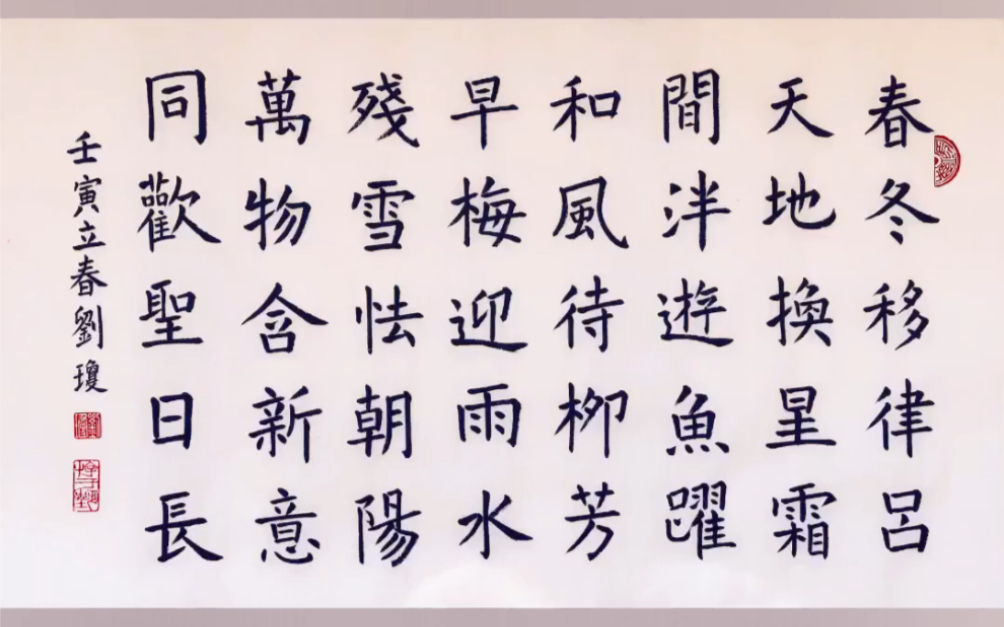 春冬移律呂
天地換星霜
間泮遊魚躍
和風待柳芳
早梅迎雨水
殘雪怯朝陽
萬物含新意
同歡聖日長
壬寅立春劉瓊